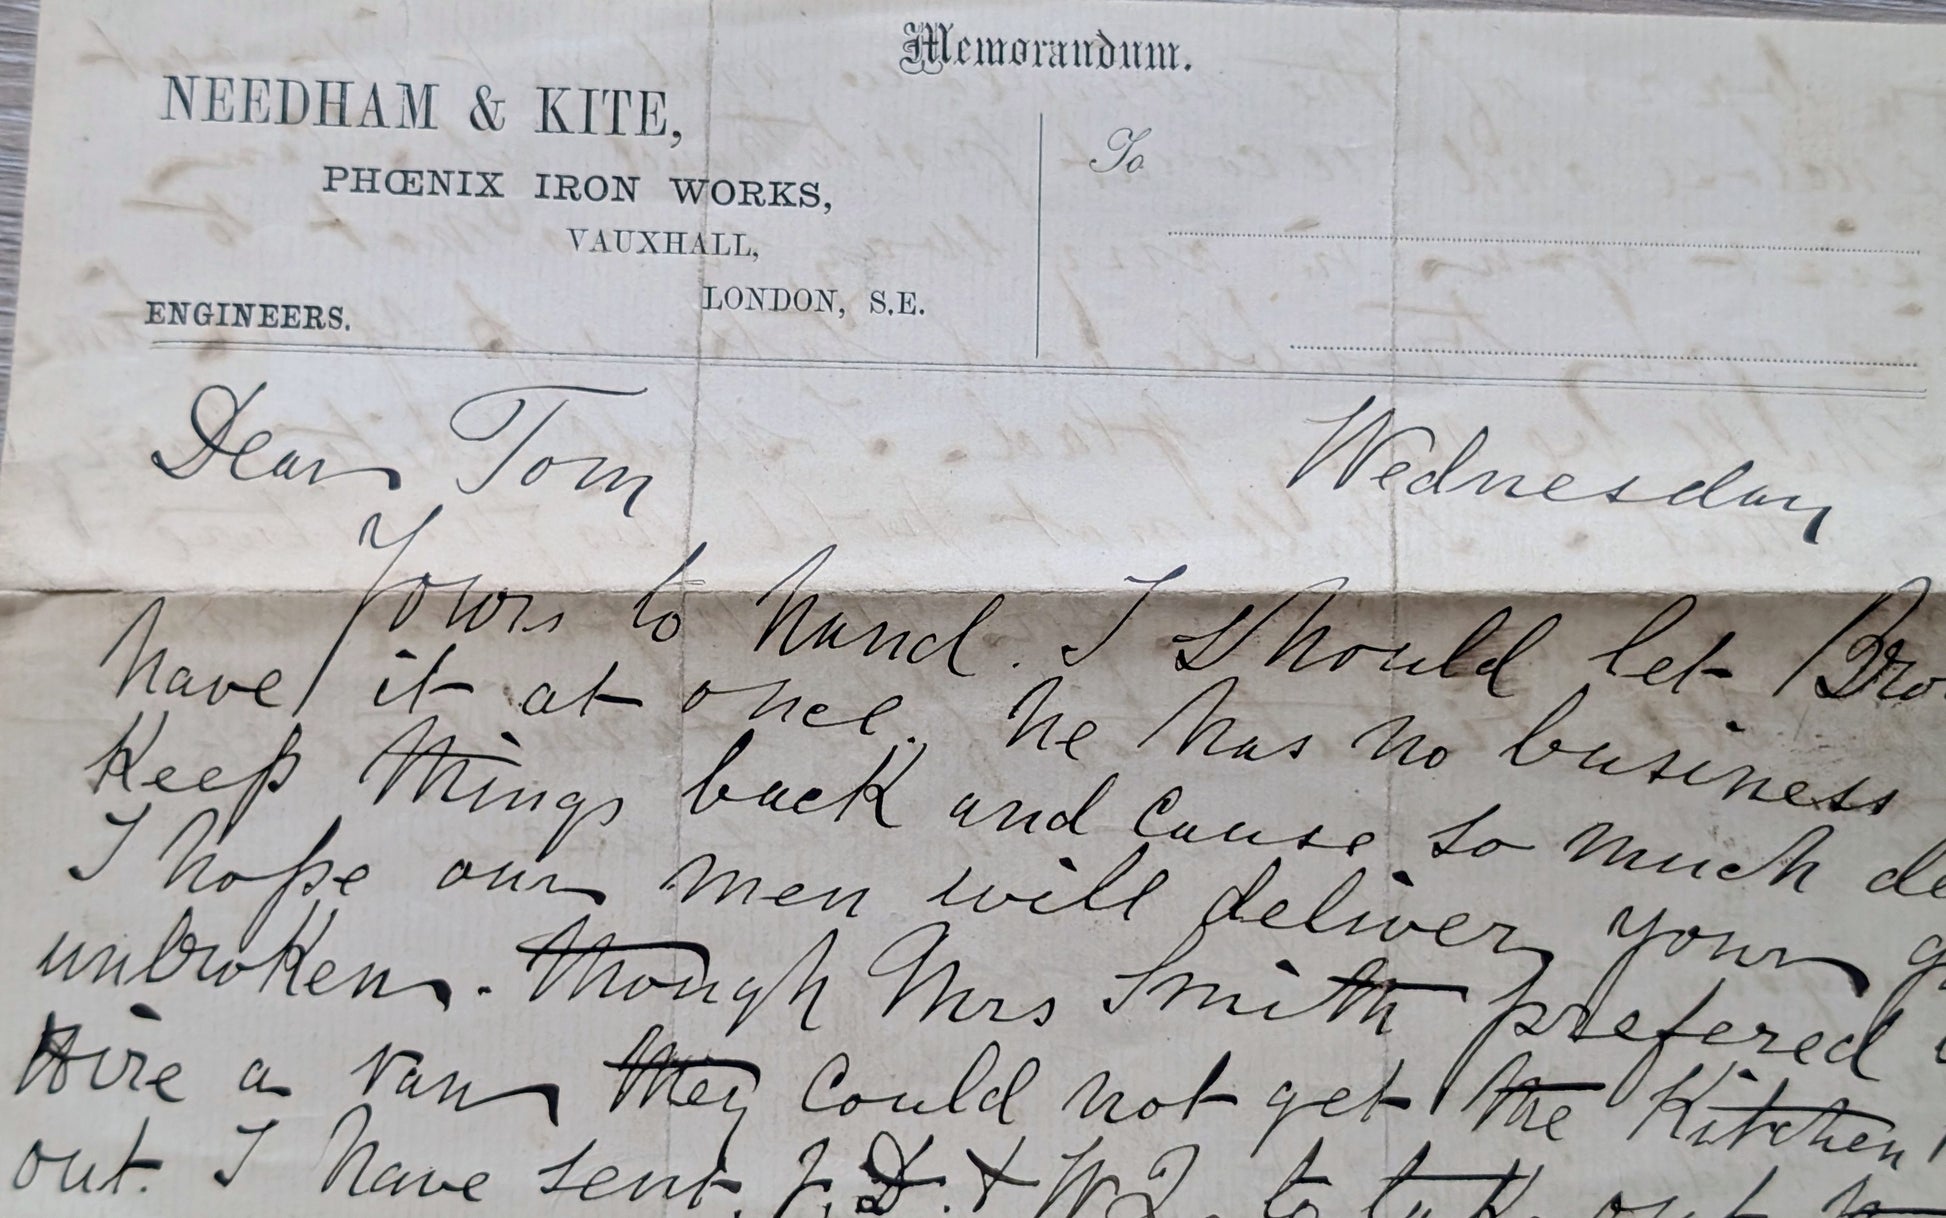 Memorandum.
NEEDHAM & KITE,
PHŒNIX IRON WORKS,
VAUXHALL,
LONDON, S.E.
ENGINEERS.
To
Dear Tom
Wednesday
Yours to hand. I should let Bro
have it at once. he has no business
Keep things back and cause so much de
I hope our men will deliver your g
unbroken. though Mrs Smith prefered
Hire a van they could not get the Kitchen
out. I have sent J. D. & W to take out